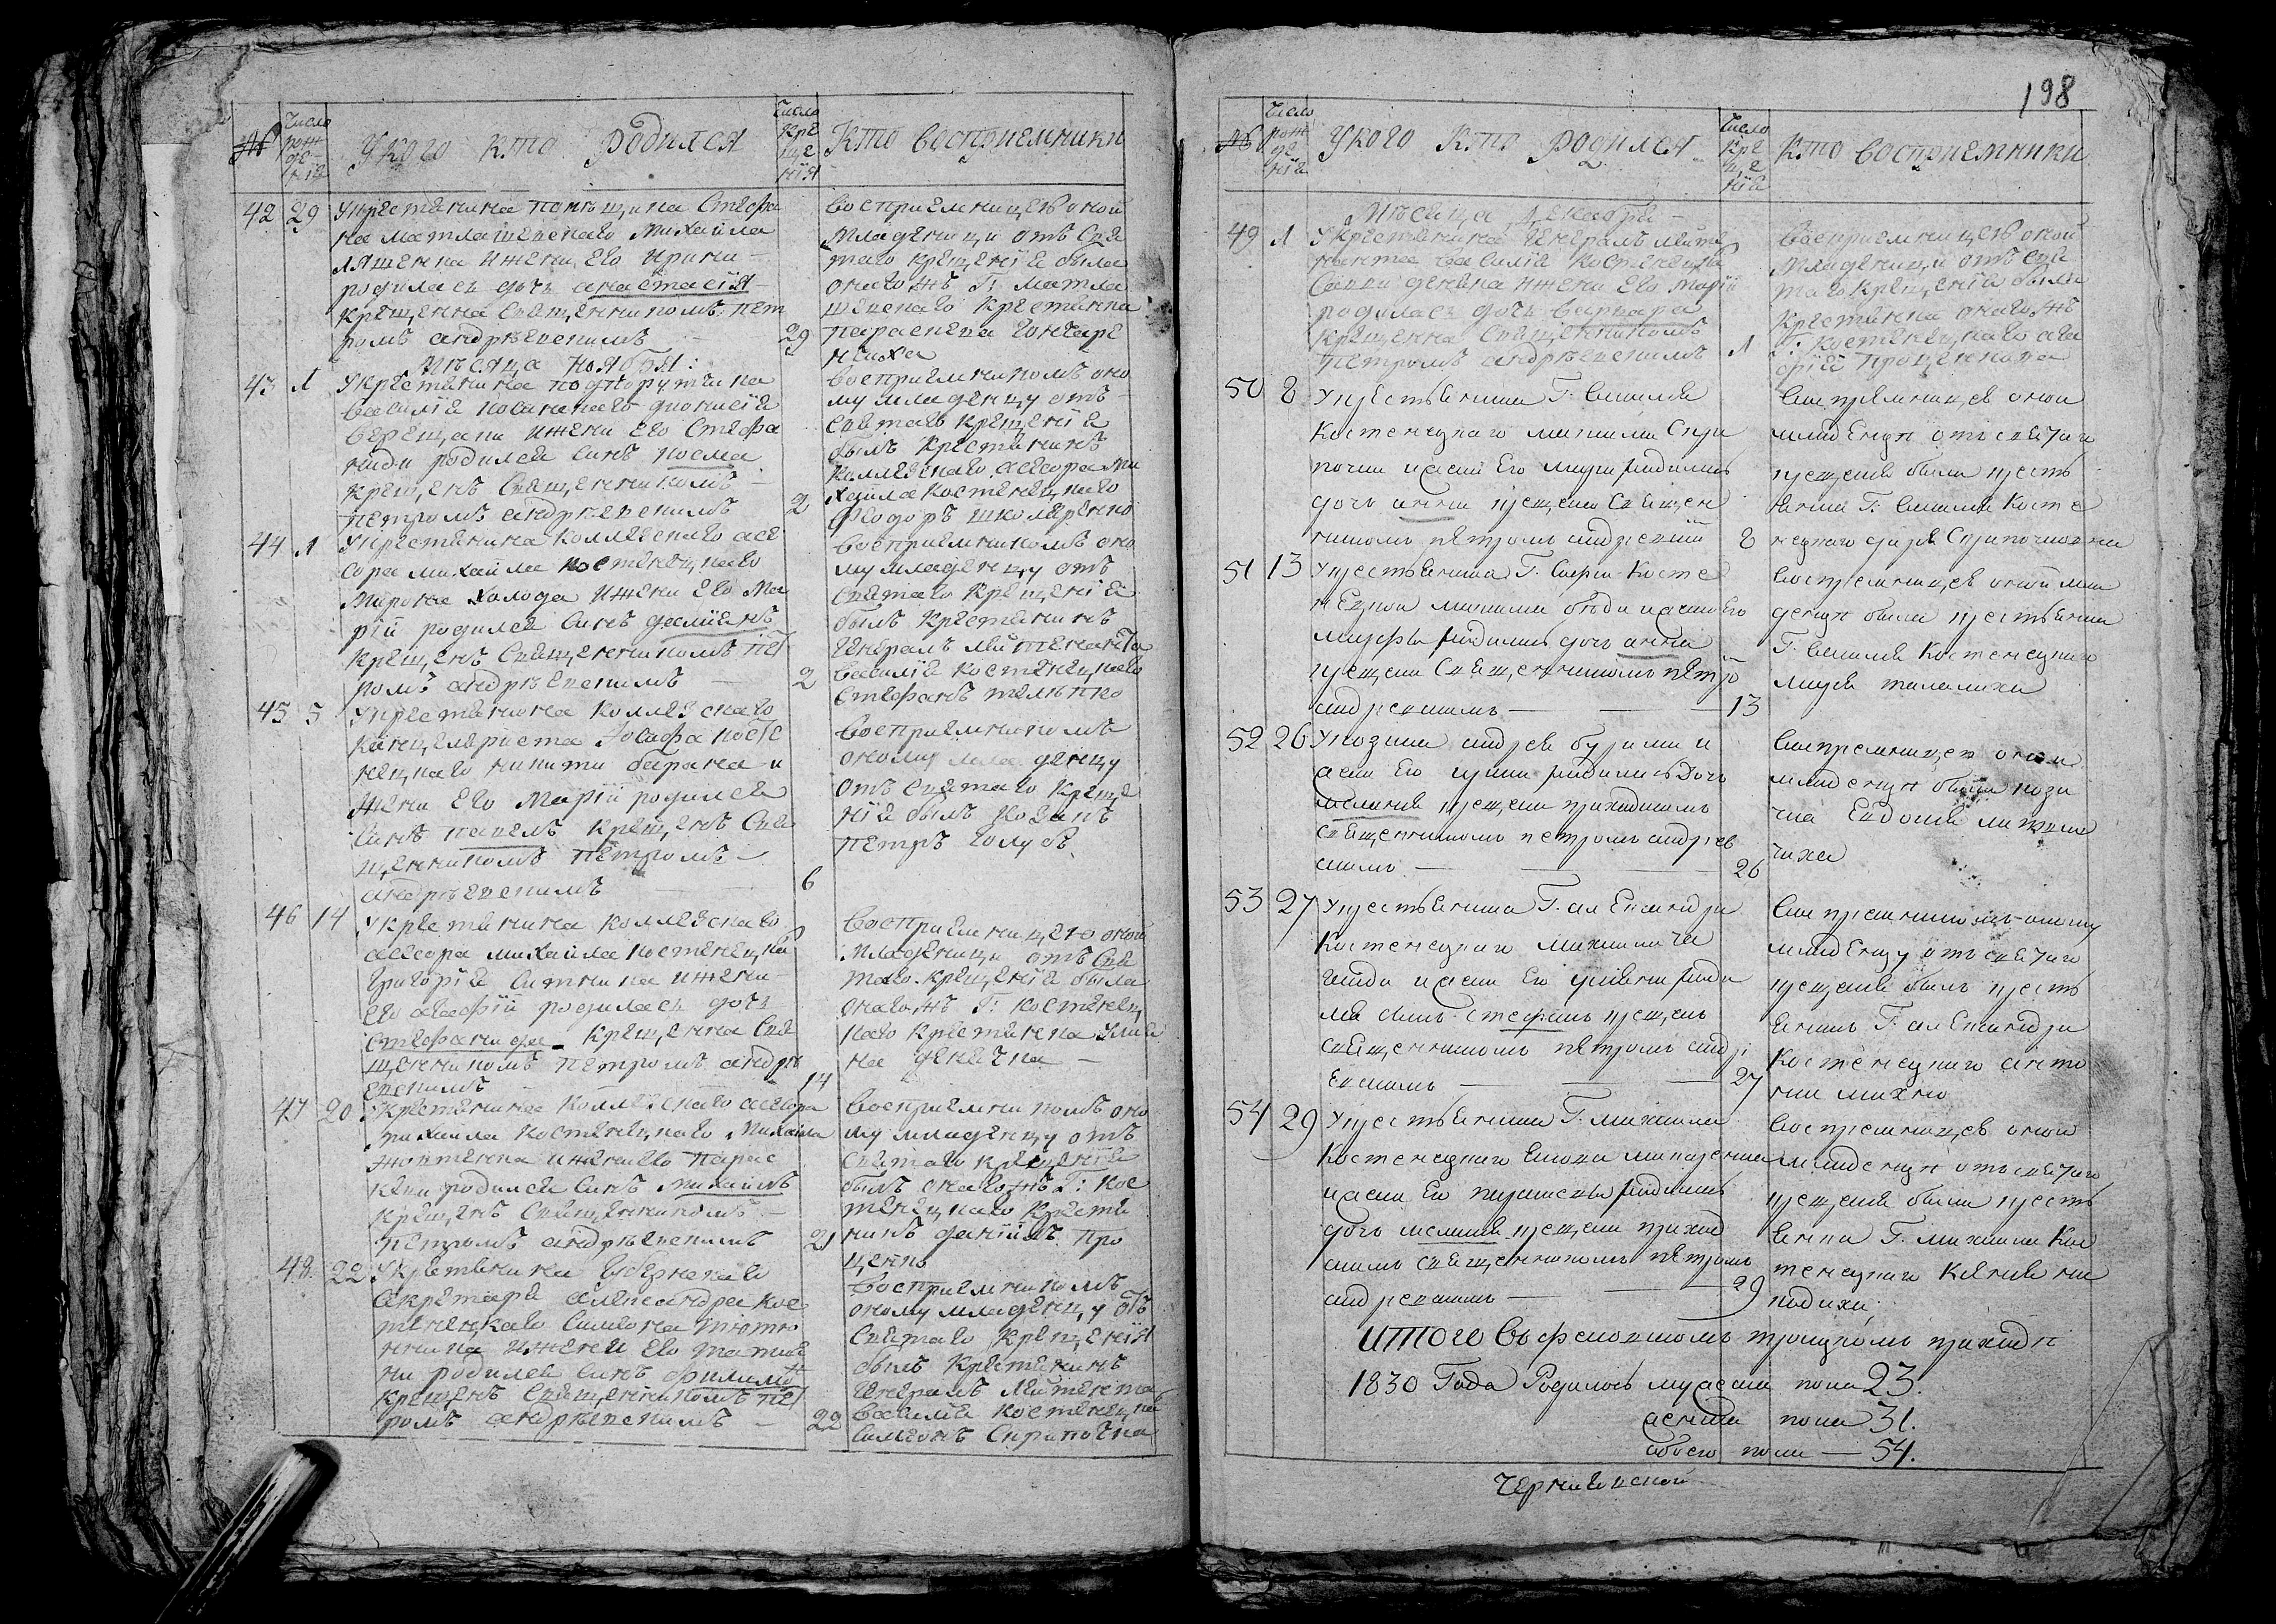 198
№
Число рожденія
У кого кто родился
Число крещенія
Кто восприемники
42 29 У крестянина помѣщика Стефа
на Матлашевскаго Михайла
Ляшенка и жени его Ирини
родилась дочь Анастасія
крещенна Священникомъ Пет
ромъ Андрѣевскимъ 29
восприемницею оной
младеницы отъ Свя
таго крещенія была
оного жъ Г: Матла
шевскаго крестянка
Параскева Гончаре
нкиха
Мѣсяца Ноября:
43 1 У крестянина подпоручика
Василія Діонисія
Верещаки и жени его Стефа
ниди родился синъ Косма
крещенъ Священникомъ
Петромъ Андрѣевскимъ 2
восприемникомъ оно
му младенцу отъ
святаго крещенія
былъ крестянинъ
коллезскаго асесора Ми
хайла Костенецкаго
Феодоръ Шкляренко
44 1 У крестянина коллезскаго асе
сора Михайла Костенецкаго
Мирона Холода и жени его Ма
рій родился синъ Даміянъ
крещенъ Священникомъ Пет
ромъ Андрѣевскимъ 2
восприемникомъ оно
му младенцу отъ
Святаго крещенія
былъ крестянинъ
Генералъ Лейтенанта
Василія Костенецкаго
Стефанъ
45 5 У крестянина коллезскаго
канцеляриста Иосафа Косте
нецкаго Никити Барана и
жени его Марій родился
синъ Павелъ крещенъ Свя
щенникомъ Петромъ
Андрѣевскимъ 6
восприемникомъ
оному младенцу
отъ святаго креще
нія былъ козакъ
Петръ Голубъ
46 14 У крестянина коллезскаго
асесора Михайла Костенецкаго
Григорія Ситника и жени
его Агафій родилась дочь
Стефанида крещенна Свя
щенникомъ Петромъ Андрѣ
евскимъ 14
восприемницею оной
младеницы отъ Свя
таго крещенія была
оного жъ Г: Костенец
каго крестянка Улия
на
47 20 У крестянина коллезскаго асесора
Михайла Костенецкаго Михайла
и жени его Парас
кевы родился синъ Михаилъ
крещенъ Священникомъ
Петромъ Андрѣевскимъ 21
восприемникомъ оно
му младенцу отъ
святаго крещенія
былъ оного жъ Г: Кос
тенецкаго крестя
нинъ Даніилъ Про
ценко
48. 22 У крестянина губернскаго
секретаря Александра Кос
тенецкаго Симеона Тютю
нника и жени его Татия
ни родился синъ Филимонъ
крещенъ Священникомъ Пет
ромъ Андрѣевскимъ 22
восприемникомъ
оному младенцу отъ
Святаго крещенія
былъ крестянинъ
Генералъ Лейтенанта
Василія Костенецкаго
Симеонъ Скрипочка
№
Число рожденія
У кого кто родился
Число крещенія
Кто восприемники
Мѣсяца Декабря
49 1 У крестянина Генералъ Лейте
нанта Василія Костенецкаго
и жени его Марій
родилась дочь Варвара
крещенна Священникомъ
Петромъ Андрѣевскимъ 1
восприемницею оной
младеницы отъ свя
таго крещенія была
крестянка оного жъ
Г: Костенецкаго Ага
фія Проценкова
50 8 У крестьянина Г. Василія
Костенецкаго Михаила Скри
почки и жены его Марфи родилась
дочь Анна крещена Священ
никомъ Петромъ Андреевски 8
восприемницею оной
младеницы отъ святаго
крещенія была кресть
янка Г: Василія Косте
нецкаго Скрипочковна
51 13 У крестьянина Г. Косте
нецкой и жены его
Марфы родилась дочь Анна
крещена Священникомъ Петро
Андреевскимъ 13
восприемницею оной мла
деницы была крестьянка
Г. Василія Костенецкаго
52 26 У козака Андрея и
жены его Ирини родилась дочь
Меланія крещена приходскимъ
Священникомъ Петромъ Андреев
скимъ 26
восприемницею оной
младеницы была коза
чка Евдокія
53 27 У крестьянина Г. Александра
Костенецкаго Михаила
и жены его роди
лся сынъ Стефанъ крещенъ
священникомъ Петромъ Андр
еевскимъ 27
восприемникомъ оному
младенцу отъ святаго
крещенія былъ кресть
янинъ Г. Александра
Костенецкаго Анто
ний Михно
54 29 У крестьянина Г. Михаила
Костенецкаго
и жены его Параскевы родилась
дочь Меланія крещена приход
скимъ священникомъ Петромъ
Андреевскимъ 29
восприемницею оной
младеницы отъ святаго
крещенія была кресть
янка Г. Михаила Кос
тенецкаго Ксенія
Итого въ Троицкомъ приходѣ
1830 Года Родилось мужеска пола 23.
женска пола 31.
обоего пола — 54.
Черниговской